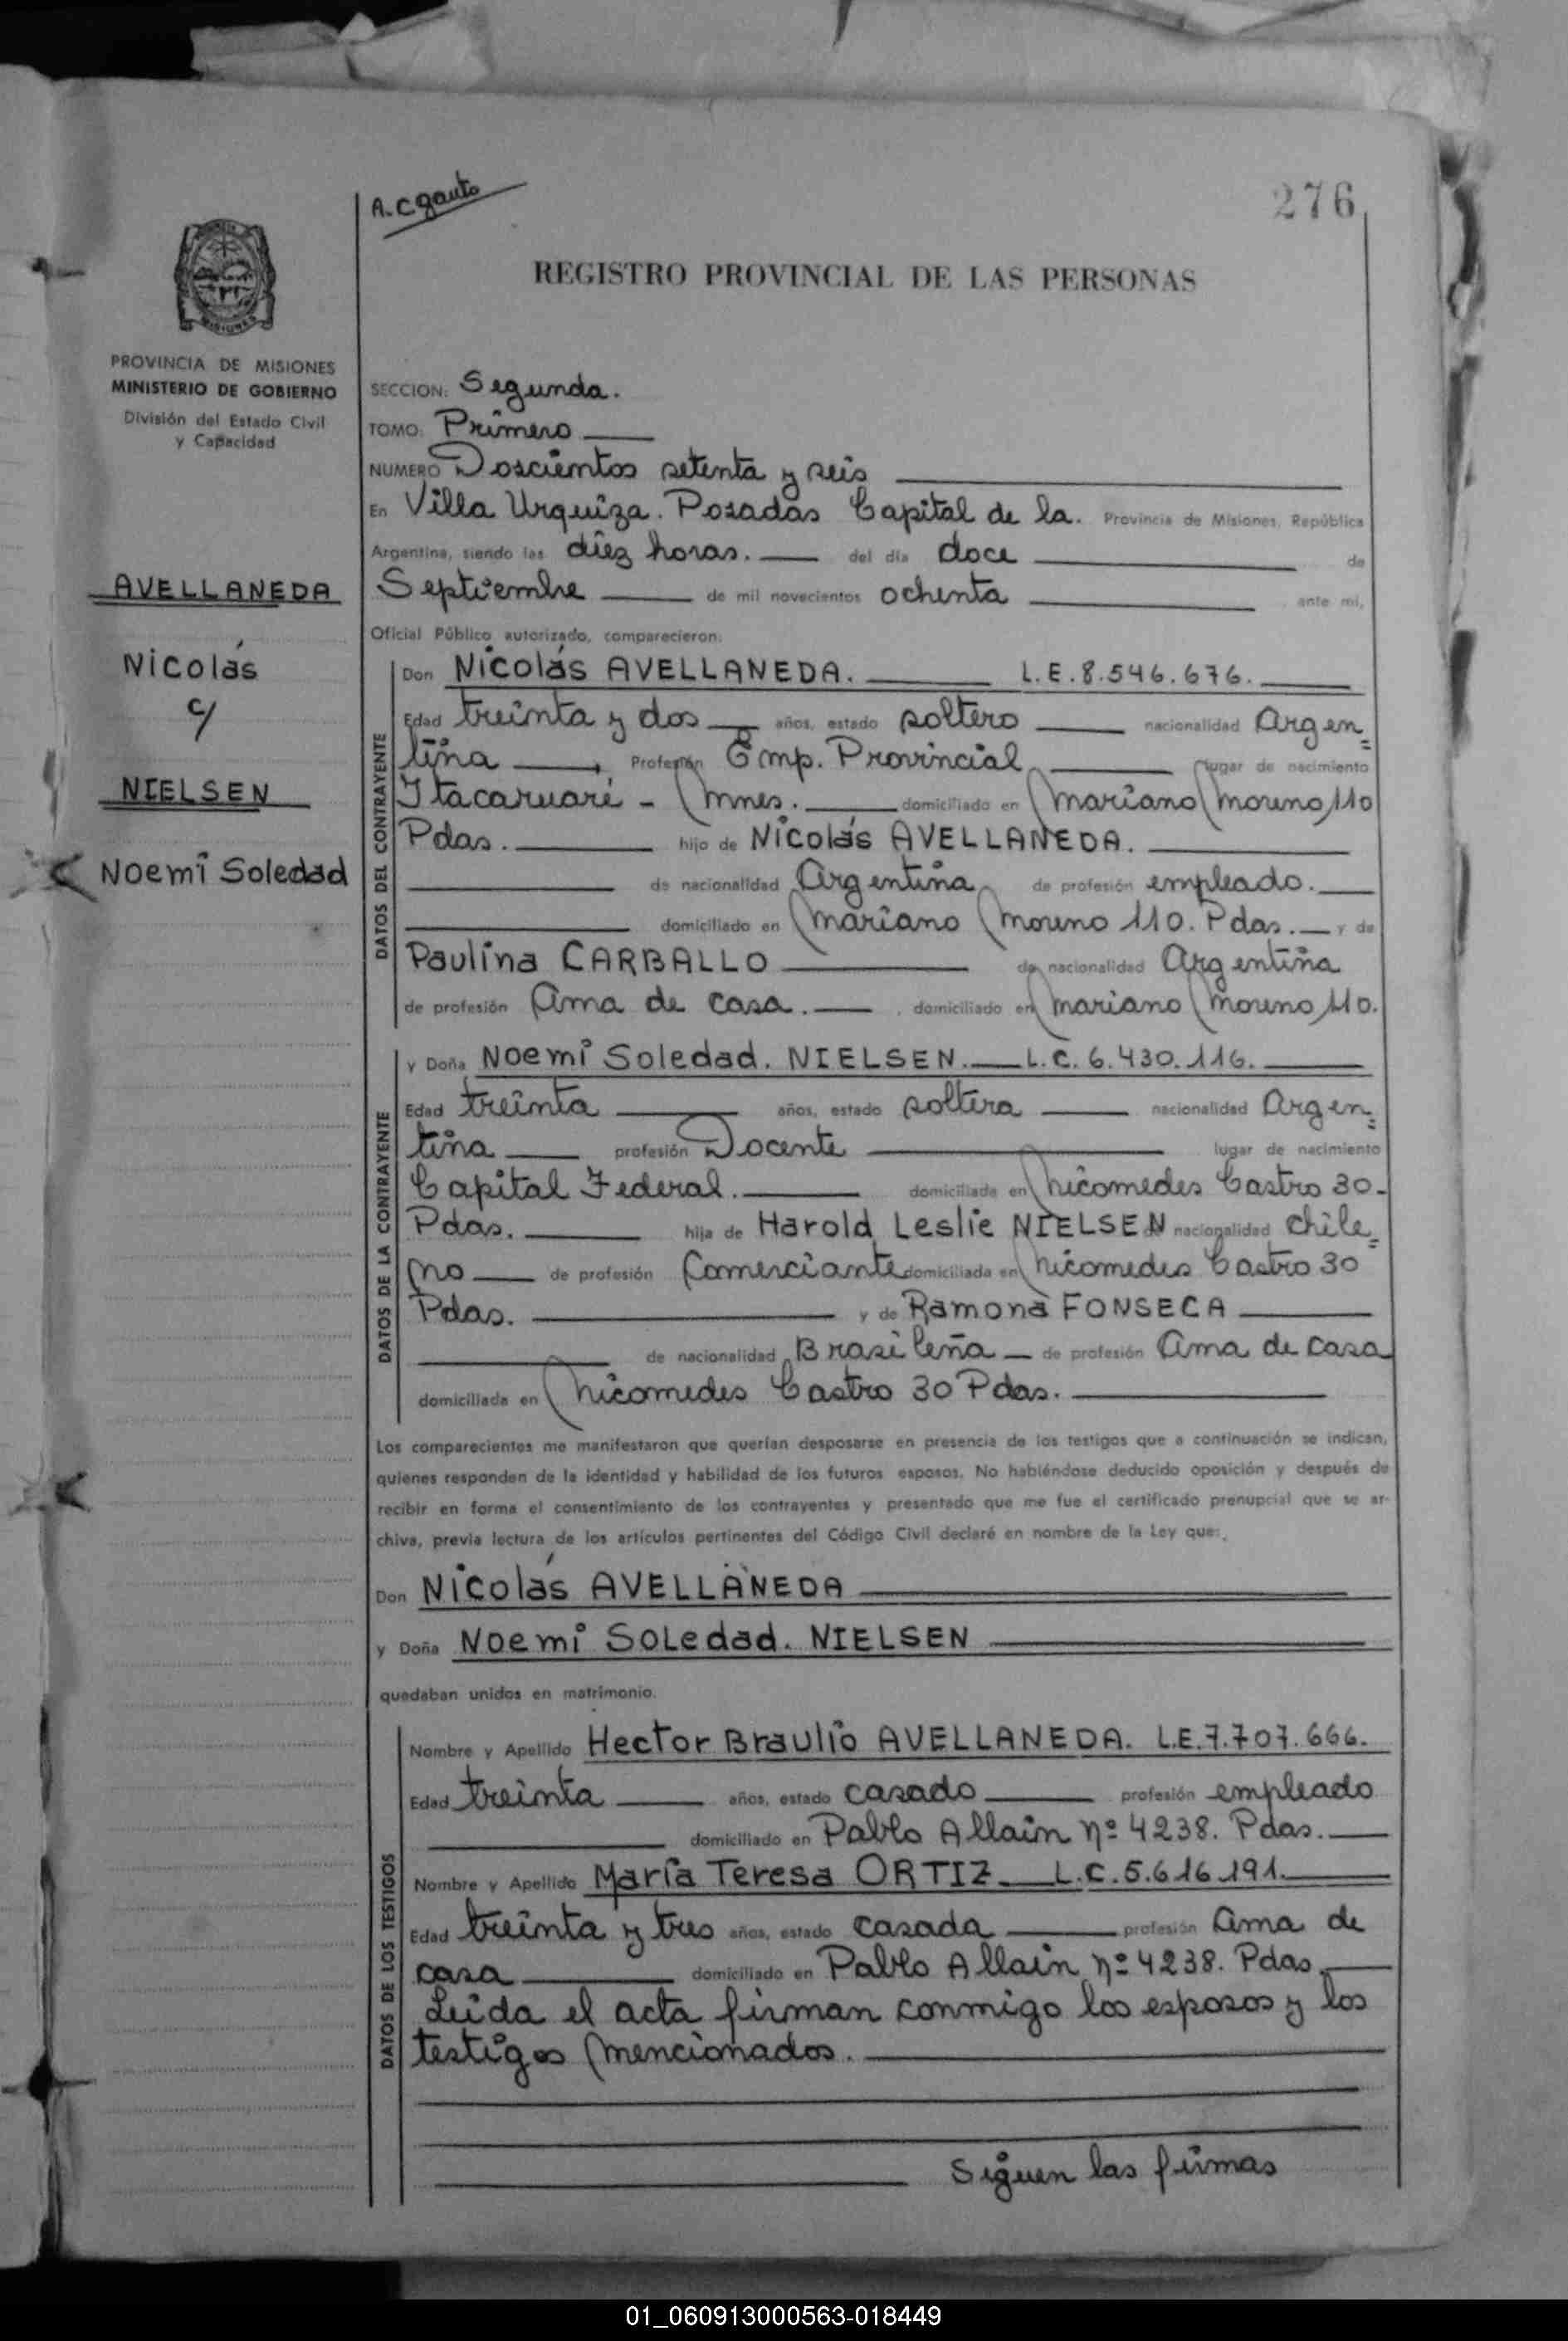 A. C. Gauto
276
REGISTRO PROVINCIAL DE LAS PERSONAS
PROVINCIA DE MISIONES
MINISTERIO DE GOBIERNO
División del Estado Civil
y Capacidad
AVELLANEDA
Nicolás
c/
NIELSEN
Noemi Soledad
SECCION: Segunda.
TOMO: Primero
NUMERO Doscientos setenta y seis
En Villa Urquiza. Posadas Capital de la. Provincia de Misiones, República
Argentina, siendo las diez horas. del día doce de
Septiembre de mil novecientos ochenta ante mi,
Oficial Público autorizado, comparecieron:
DATOS DEL CONTRAYENTE
Don Nicolás AVELLANEDA. L.E.8.546.676.
Edad treinta y dos años, estado soltero nacionalidad Argen=
tina Profesión Emp. Provincial lugar de nacimiento
Itacaruaré - Mnes. domiciliado en Mariano Moreno 110
Pdas. hijo de Nicolás AVELLANEDA.
de nacionalidad Argentina de profesión empleado.
domiciliado en Mariano Moreno 110. Pdas. y de
Paulina CARBALLO de nacionalidad Argentina
de profesión Ama de casa. domiciliado en Mariano Moreno 110.
DATOS DE LA CONTRAYENTE
y Doña Noemi Soledad. NIELSEN. L.C. 6.430.116.
Edad treinta años, estado soltera nacionalidad Argen=
tina profesión Docente lugar de nacimiento
Capital Federal. domiciliada en Nicomedes Castro 30-
Pdas. hija de Harold Leslie NIELSEN de nacionalidad chile=
no de profesión Comerciante domiciliada en Nicomedes Castro 30
Pdas. y de Ramona FONSECA
de nacionalidad Brasileña de profesión Ama de casa
domiciliada en Nicomedes Castro 30 Pdas.
Los comparecientes me manifestaron que querían desposarse en presencia de los testigos que a continuación se indican,
quienes responden de la identidad y habilidad de los futuros esposos. No habiéndose deducido oposición y después de
recibir en forma el consentimiento de los contrayentes y presentado que me fue el certificado prenupcial que se ar-
chiva, previa lectura de los artículos pertinentes del Código Civil declaré en nombre de la Ley que:
Don Nicolás AVELLANEDA
y Doña Noemi Soledad. NIELSEN
quedaban unidos en matrimonio.
DATOS DE LOS TESTIGOS
Nombre y Apellido Hector Braulio AVELLANEDA. L.E.7.707.666.
Edad treinta años, estado casado profesión empleado
domiciliado en Pablo Allain nº 4238. Pdas.
Nombre y Apellido María Teresa ORTIZ. L.C.5.616.191.
Edad treinta y tres años, estado casada profesión Ama de
casa domiciliado en Pablo Allain nº 4238. Pdas.
Leída el acta firman conmigo los esposos y los
testigos mencionados.
Siguen las firmas
01_060913000563-018449